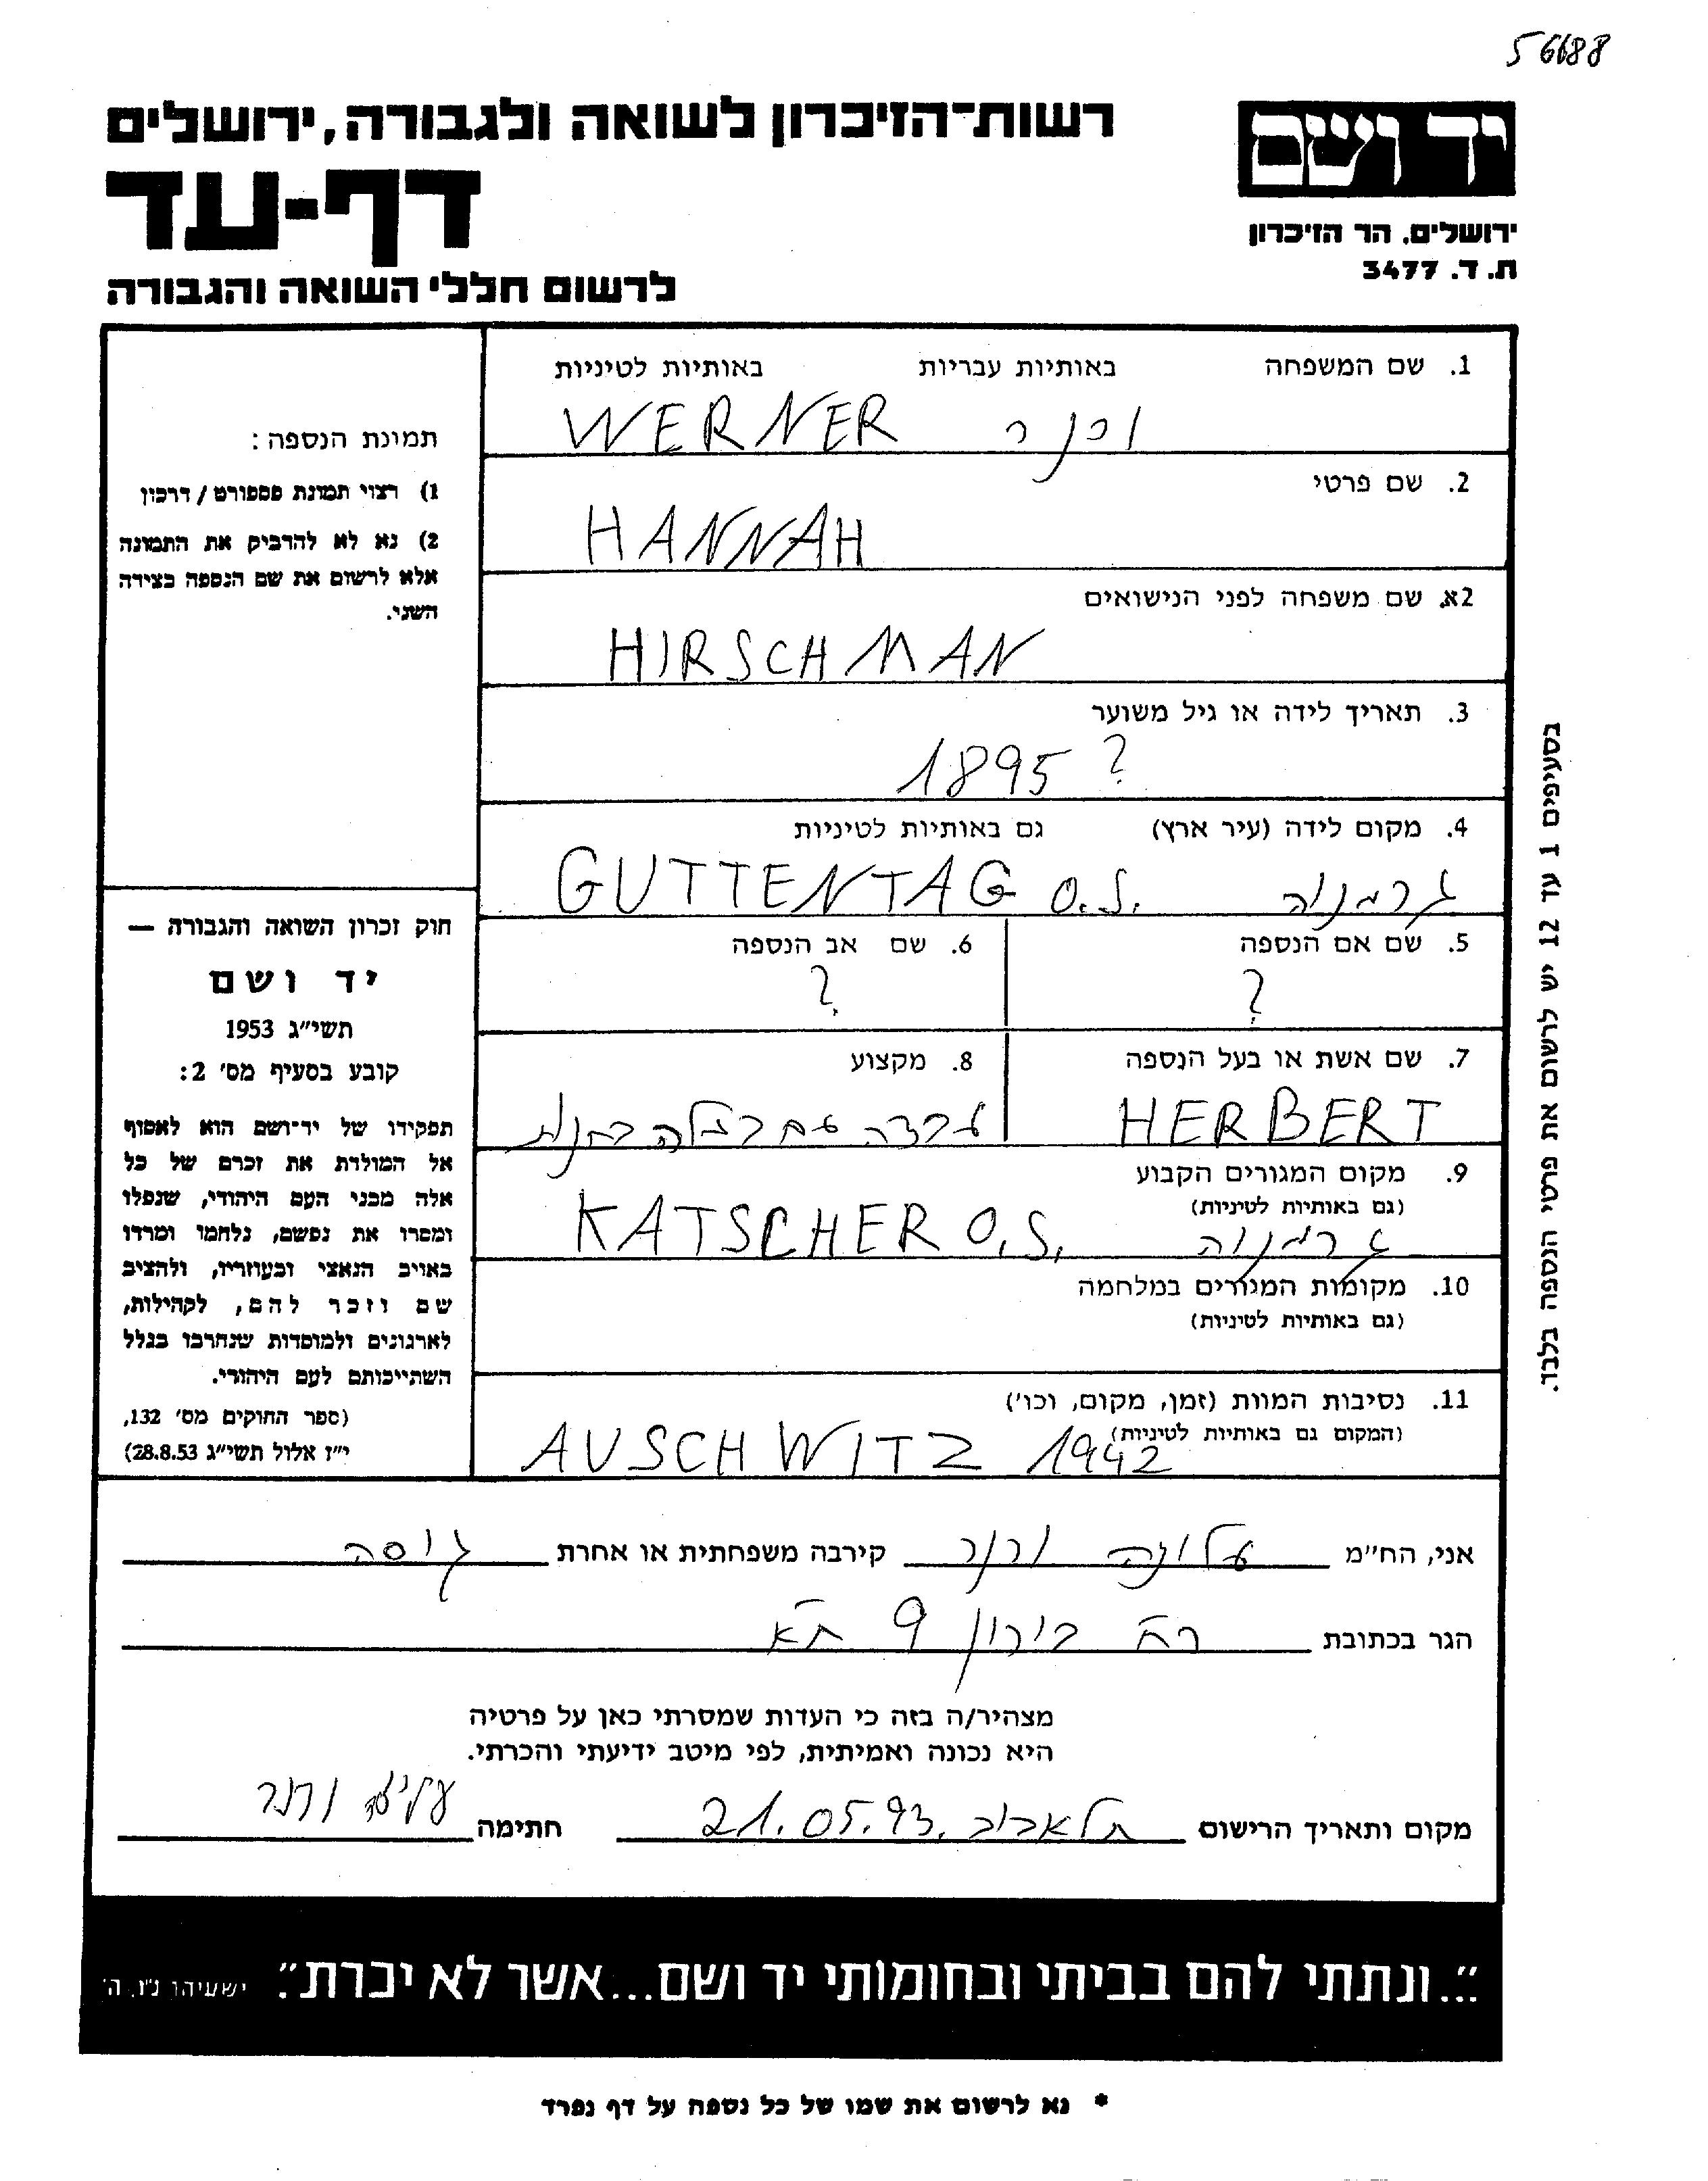 56688
רשות־הזיכרון לשואה ולגבורה, ירושלים
יד ושם
דף-עד
ירושלים, הר הזיכרון
ת. ד. 3477
לרשום חללי השואה והגבורה
1. שם המשפחה באותיות עבריות באותיות לטיניות
ורנר WERNER
2. שם פרטי
HANNAH
2א. שם משפחה לפני הנישואים
HIRSCHMAN
3. תאריך לידה או גיל משוער
1895 ?
4. מקום לידה (עיר ארץ) גם באותיות לטיניות
גרמניה GUTTENTAG O.S.
5. שם אם הנספה
?
6. שם אב הנספה
?
7. שם אשת או בעל הנספה
HERBERT
8. מקצוע
עבדה עם בעלה בחנות
9. מקום המגורים הקבוע
(גם באותיות לטיניות)
גרמניה KATSCHER O.S.
10. מקומות המגורים במלחמה
(גם באותיות לטיניות)
11. נסיבות המוות (זמן, מקום, וכו')
(המקום גם באותיות לטיניות)
AUSCHWITZ 1942
תמונת הנספה:
1) רצוי תמונת פספורט / דרכון
2) נא לא להדביק את התמונה
אלא לרשום את שם הנספה בצידה
השני.
חוק זכרון השואה והגבורה —
יד ושם
תשי״ג 1953
קובע בסעיף מס' 2:
תפקידו של יד־ושם הוא לאסוף
אל המולדת את זכרם של כל
אלה מבני העם היהודי, שנפלו
ומסרו את נפשם, נלחמו ומרדו
באויב הנאצי ובעוזריו, ולהציב
שם וזכר להם, לקהילות,
לארגונים ולמוסדות שנחרבו בגלל
השתייכותם לעם היהודי.
(ספר החוקים מס' 132,
י״ז אלול תשי״ג 28.8.53)
בסעיפים 1 עד 12 יש לרשום את פרטי הנספה בלבד.
אני, הח״מ ורנר קירבה משפחתית או אחרת גיסה
הגר בכתובת רח' בירון 9 ת״א
מצהיר/ה בזה כי העדות שמסרתי כאן על פרטיה
היא נכונה ואמיתית, לפי מיטב ידיעתי והכרתי.
מקום ותאריך הרישום תל אביב, 21.05.93 חתימה ורנר
״...ונתתי להם בביתי ובחומותי יד ושם...אשר לא יכרת״. ישעיהו נ״ו, ה'
* נא לרשום את שמו של כל נספה על דף נפרד